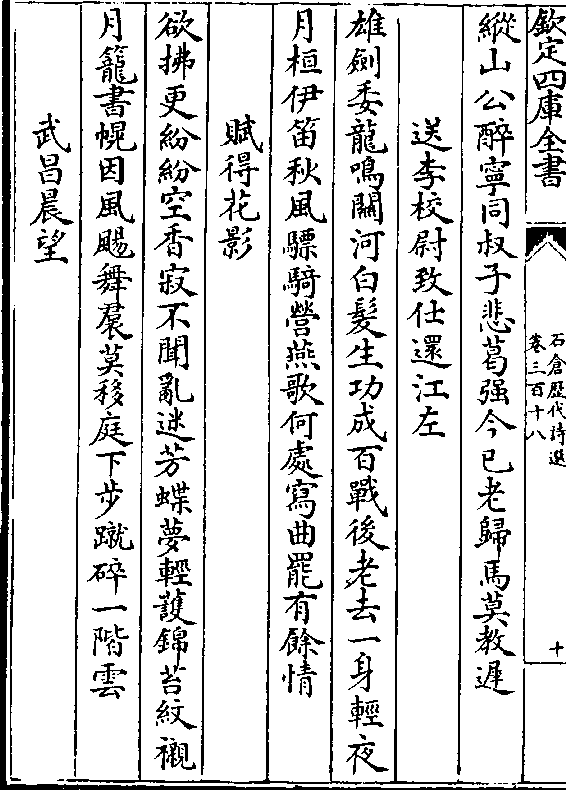 欽定四庫全書
石倉歴代詩選
卷三百十八
十
縱山公醉寧同叔子悲葛强今已老歸馬莫教遲
送李校尉致仕還江左
雄劍委龍鳴關河白髮生功成百戰後老去一身輕夜
月桓伊笛秋風驃騎營燕歌何處寫曲罷有餘情
賦得花影
欲拂更紛紛空香寂不聞亂迷芳蝶夢輕護錦苔紋襯
月籠書幌因風颺舞裠莫移庭下步蹴碎一階雲
武昌晨望